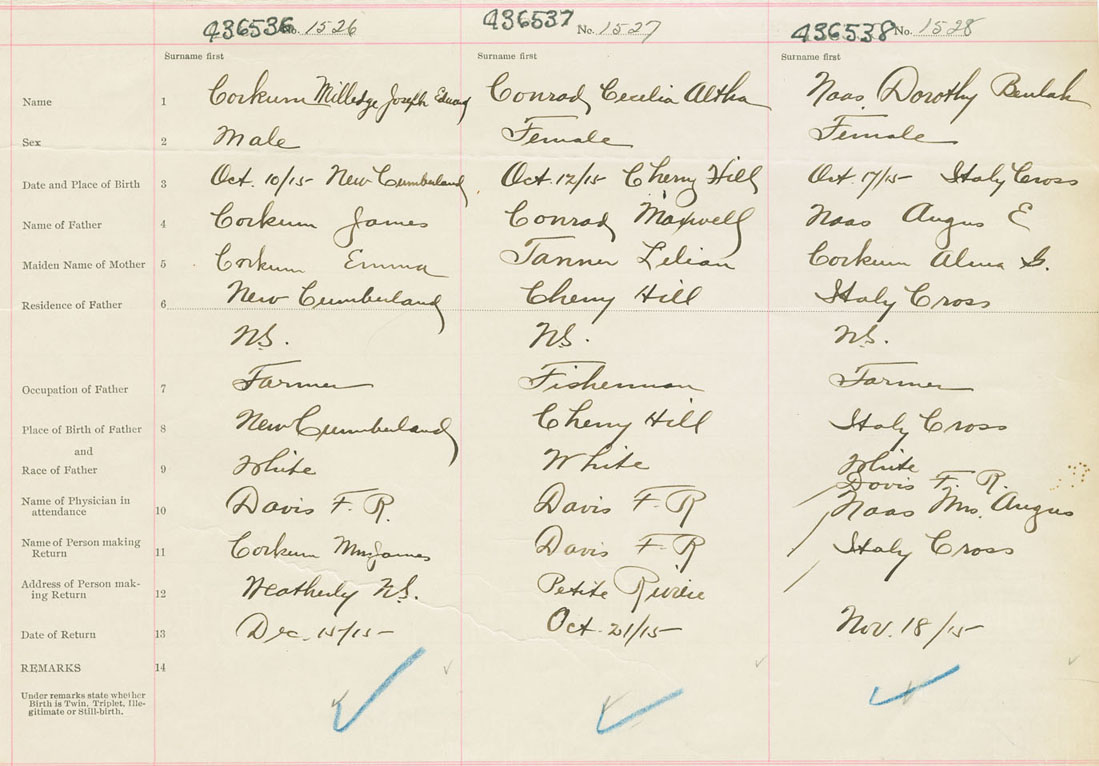 436536 No. 1526 436537 No. 1527 436538 No. 1528
Surname first Surname first Surname first
Name 1 Corkum Milledge Joseph Edward Conrad Cecilia Altha Naas Dorothy Beulah
Sex 2 Male Female Female
Date and Place of Birth 3 Oct. 10/15 New Cumberland Oct. 12/15 Cherry Hill Oct. 17/15 Italy Cross
Name of Father 4 Corkum James Conrad Maxwell Naas Angus E
Maiden Name of Mother 5 Corkum Emma Tanner Lilian Corkum Alma G.
Residence of Father 6 New Cumberland Cherry Hill Italy Cross
N.S. N.S. N.S.
Occupation of Father 7 Farmer Fisherman Farmer
Place of Birth of Father 8 New Cumberland Cherry Hill Italy Cross
and
Race of Father 9 White White White
Davis F. R.
Name of Physician in
attendance 10 Davis F. R. Davis F. R Naas Mrs. Angus
Name of Person making
Return 11 Corkum Mrs James Davis F. R Italy Cross
Address of Person mak-
ing Return 12 N.S. Petite Riviere
Date of Return 13 Dec. 15/15 Oct. 21/15 Nov. 18/15
REMARKS 14
Under remarks state whether
Birth is Twin, Triplet, Ille-
gitimate or Still-birth.